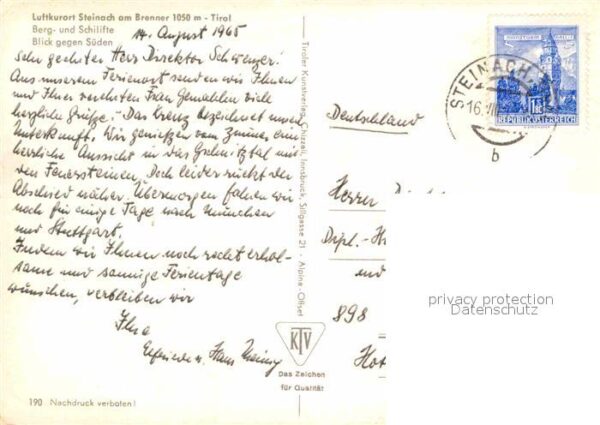 Luftkurort Steinach am Brenner 1050 m - Tirol
Berg- und Schilifte
Blick gegen Süden
14. August 1965
Sehr geehrter Herr Direktor
Aus unserem Ferienort senden wir Ihnen
und Ihrer verehrten Frau Gemahlin viele
herzliche Grüße. - Das Kreuz bezeichnet unsere
Unterkunft. Wir genießen vom Zimmer eine
herrliche Aussicht in das Gschnitztal mit
den Feuersteinen. Doch leider rückt der
Abschied näher. Übermorgen fahren wir
noch für einige Tage nach München
und Stuttgart.
Indem wir Ihnen noch recht erhol-
same und sonnige Ferientage
wünschen, verbleiben wir
Ihre
Elfriede u. Hans
190 Nachdruck verboten!
Tiroler Kunstverlag Chizzali, Innsbruck, Sillgasse 21 - Alpina-Offset
KTV
Das Zeichen
für Qualität
REPUBLIK ÖSTERREICH
STEINACH
16.
b
Deutschland
Herrn
Dipl.-H
und
898
Hot
privacy protection
Datenschutz